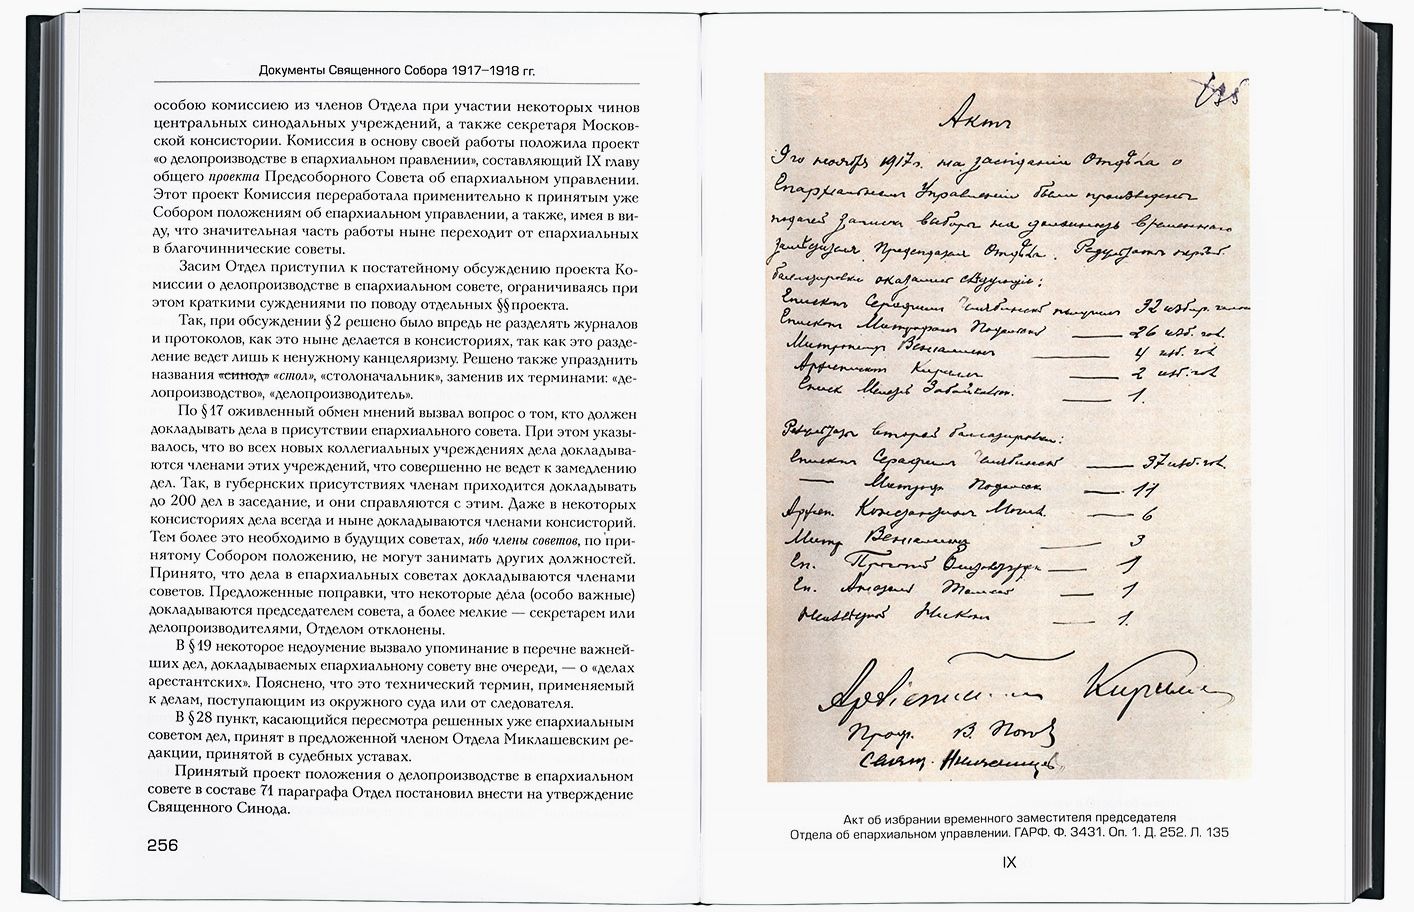 Документы Священного Собора 1917–1918 гг.
особою комиссиею из членов Отдела при участии некоторых чинов
центральных синодальных учреждений, а также секретаря Москов-
ской консистории. Комиссия в основу своей работы положила проект
«о делопроизводстве в епархиальном правлении», составляющий IX главу
общего проекта Предсоборного Совета об епархиальном управлении.
Этот проект Комиссия переработала применительно к принятым уже
Собором положениям об епархиальном управлении, а также, имея в ви-
ду, что значительная часть работы ныне переходит от епархиальных
в благочиннические советы.
Засим Отдел приступил к постатейному обсуждению проекта Ко-
миссии о делопроизводстве в епархиальном совете, ограничиваясь при
этом краткими суждениями по поводу отдельных §§ проекта.
Так, при обсуждении § 2 решено было впредь не разделять журналов
и протоколов, как это ныне делается в консисториях, так как это разде-
ление ведет лишь к ненужному канцеляризму. Решено также упразднить
названия «синод» «стол», «столоначальник», заменив их терминами: «де-
лопроизводство», «делопроизводитель».
По § 17 оживленный обмен мнений вызвал вопрос о том, кто должен
докладывать дела в присутствии епархиального совета. При этом указы-
валось, что во всех новых коллегиальных учреждениях дела докладыва-
ются членами этих учреждений, что совершенно не ведет к замедлению
дел. Так, в губернских присутствиях членам приходится докладывать
до 200 дел в заседание, и они справляются с этим. Даже в некоторых
консисториях дела всегда и ныне докладываются членами консисторий.
Тем более это необходимо в будущих советах, ибо члены советов, по при-
нятому Собором положению, не могут занимать других должностей.
Принято, что дела в епархиальных советах докладываются членами
советов. Предложенные поправки, что некоторые дела (особо важные)
докладываются председателем совета, а более мелкие — секретарем или
делопроизводителями, Отделом отклонены.
В § 19 некоторое недоумение вызвало упоминание в перечне важней-
ших дел, докладываемых епархиальному совету вне очереди, — о «делах
арестантских». Пояснено, что это технический термин, применяемый
к делам, поступающим из окружного суда или от следователя.
В § 28 пункт, касающийся пересмотра решенных уже епархиальным
советом дел, принят в предложенной членом Отдела Миклашевским ре-
дакции, принятой в судебных уставах.
Принятый проект положения о делопроизводстве в епархиальном
совете в составе 71 параграфа Отдел постановил внести на утверждение
Священного Синода.
256
135
Актъ
9го ноября 1917 г. на засѣданіи Отдѣла о
Епархіальномъ Управленіи были произведены
подачей записокъ выборы на должность временнаго
замѣстителя Предсѣдателя Отдѣла. Результаты первой
баллотировки оказались слѣдующіе:
Епископъ Серафимъ Челябинскій получилъ 32 избир. голоса
Епископъ Митрофанъ Подольскій — 26 изб. гол.
Митрополитъ Веніаминъ — 4 изб. гол.
Архіепископъ Кириллъ — 2 изб. гол.
Еписк. Мелетій Забайкальск. — 1.
Результаты второй баллотировки:
Епископъ Серафимъ Челябинскій — 37 изб. гол.
— Митроф. Подольск. — 17
Архіеп. Константинъ Могил. — 6
Митр. Веніаминъ — 3
Еп. — 1
Еп. Анатолій Томскій — 1
Никонъ — 1.
Архіепископъ Кириллъ
Проф. В. Попов
Свящ.
Акт об избрании временного заместителя председателя
Отдела об епархиальном управлении. ГАРФ. Ф. 3431. Оп. 1. Д. 252. Л. 135
IX